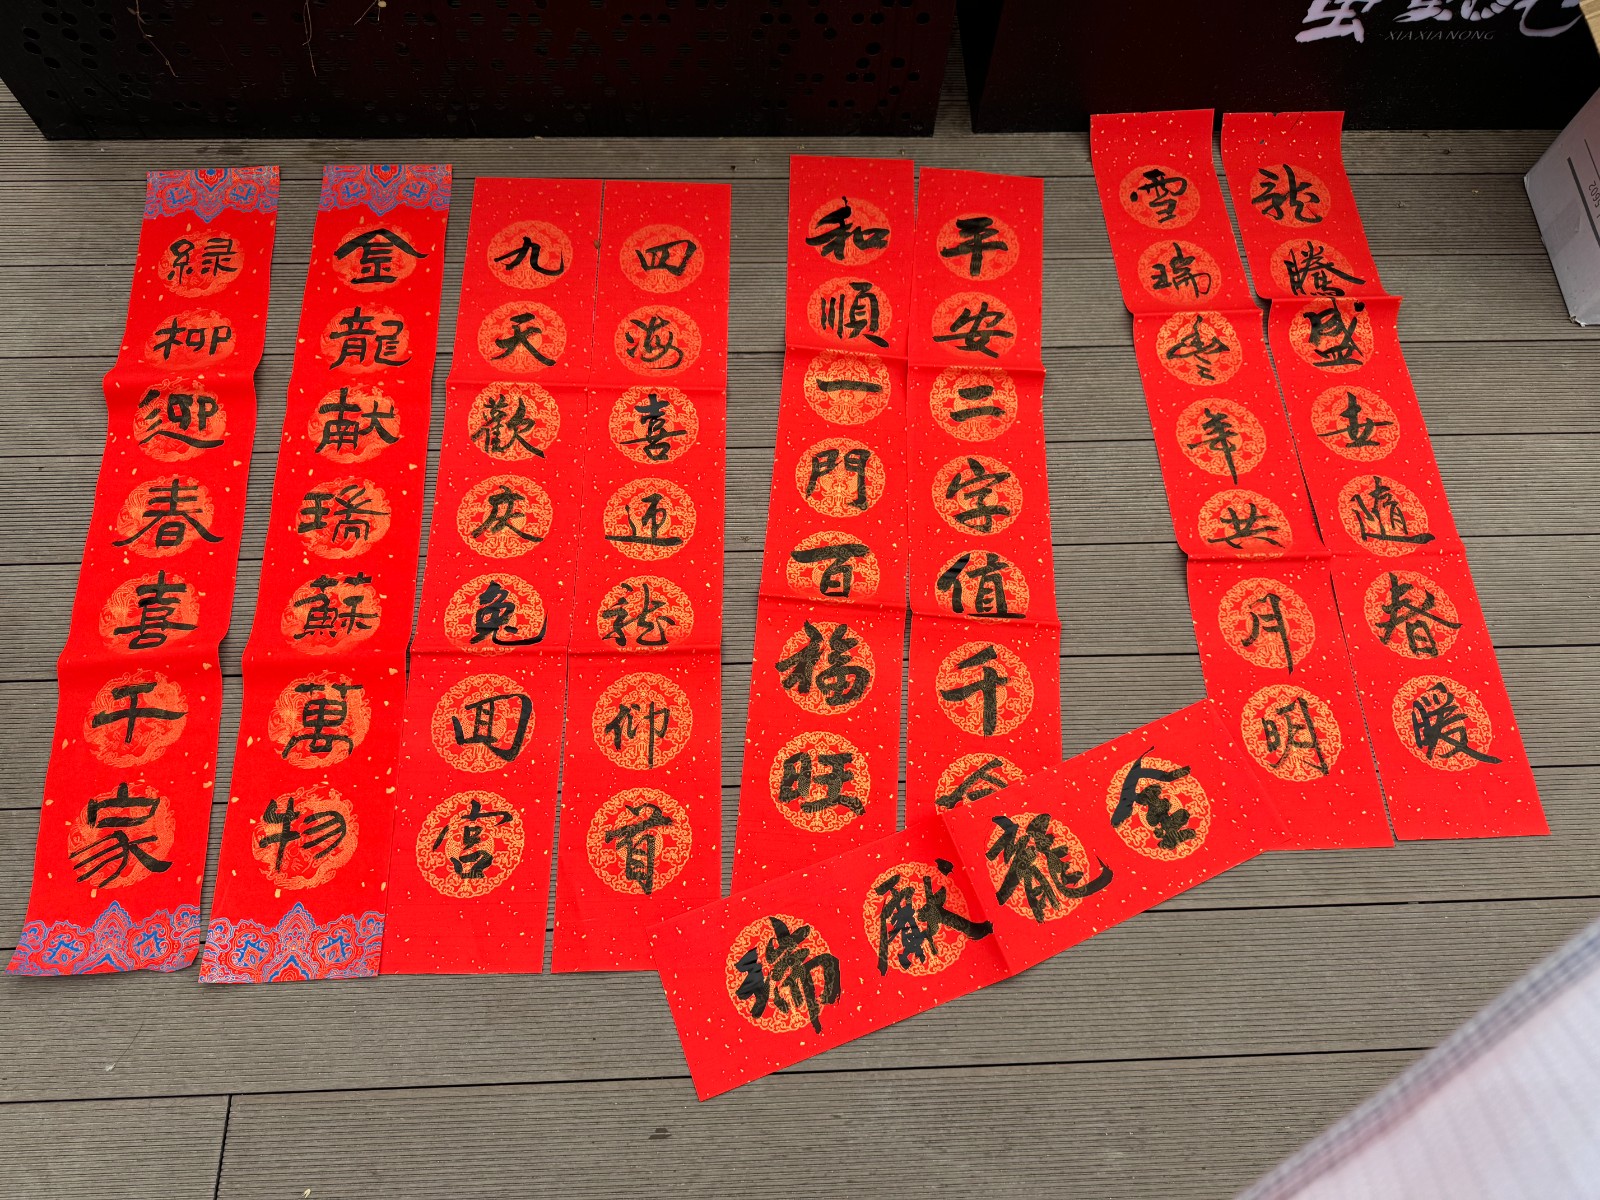 龙騰盛世隨春暖
雪瑞豐年共月明
平安二字值千
和順一門百福旺
四海喜迎龙仰首
九天歡庆兔回宫
金龍献瑞蘇萬物
緑柳迎春喜千家
金龍獻瑞
XIAXIANONG